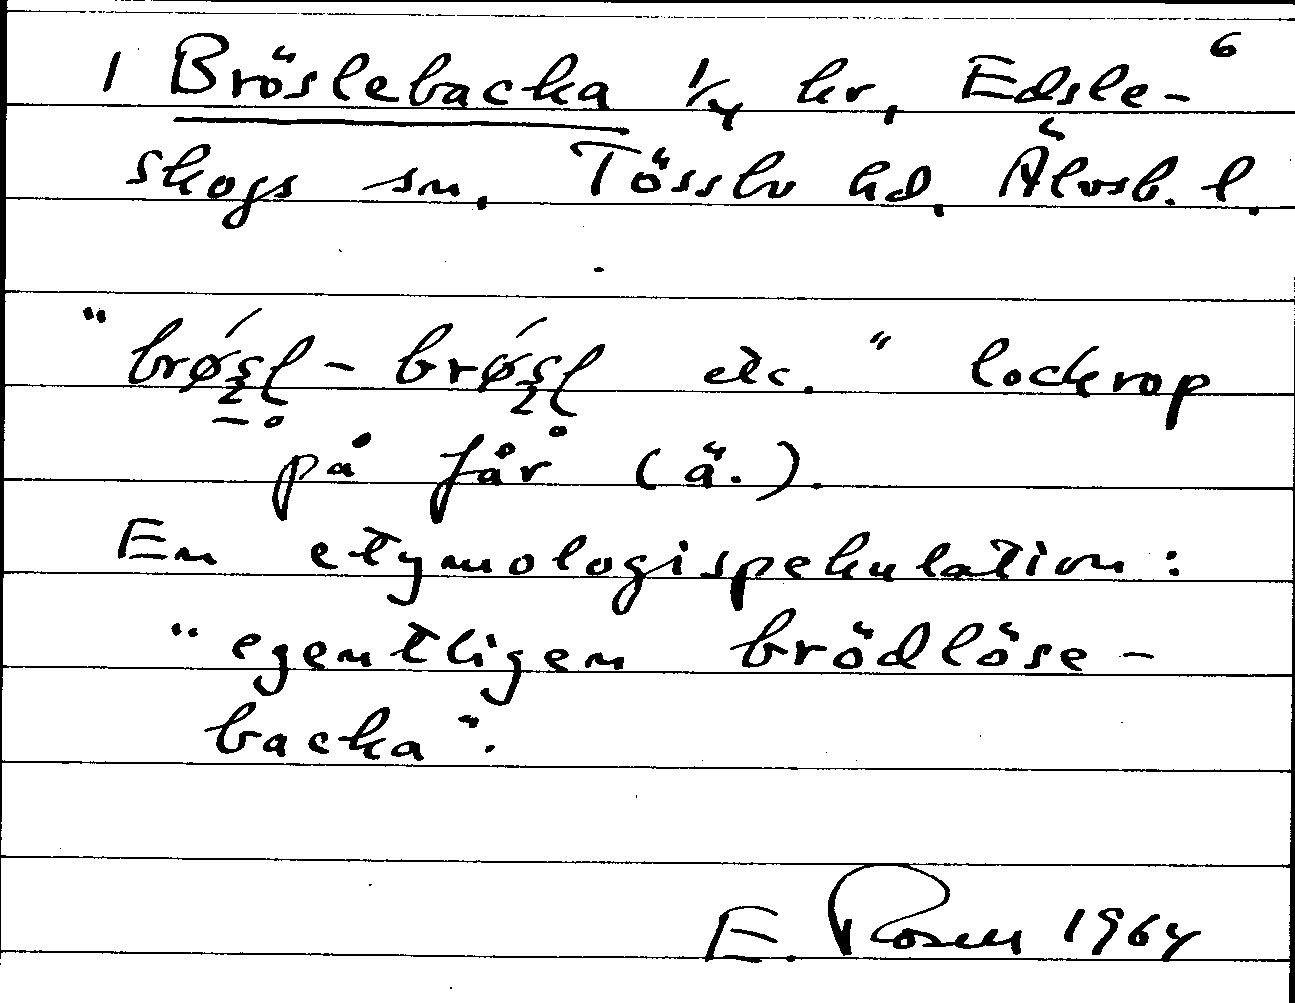 6
1 Bröslebacka 1/4 kr, Edsle-
skogs sn. Tösslv hd. Älvsb. l.
"brǿsl - brǿsl etc." lockrop
på får (ä.).
En etymologispekulation:
"egentligen brödlöse-
backa".
E. Rosell 1964